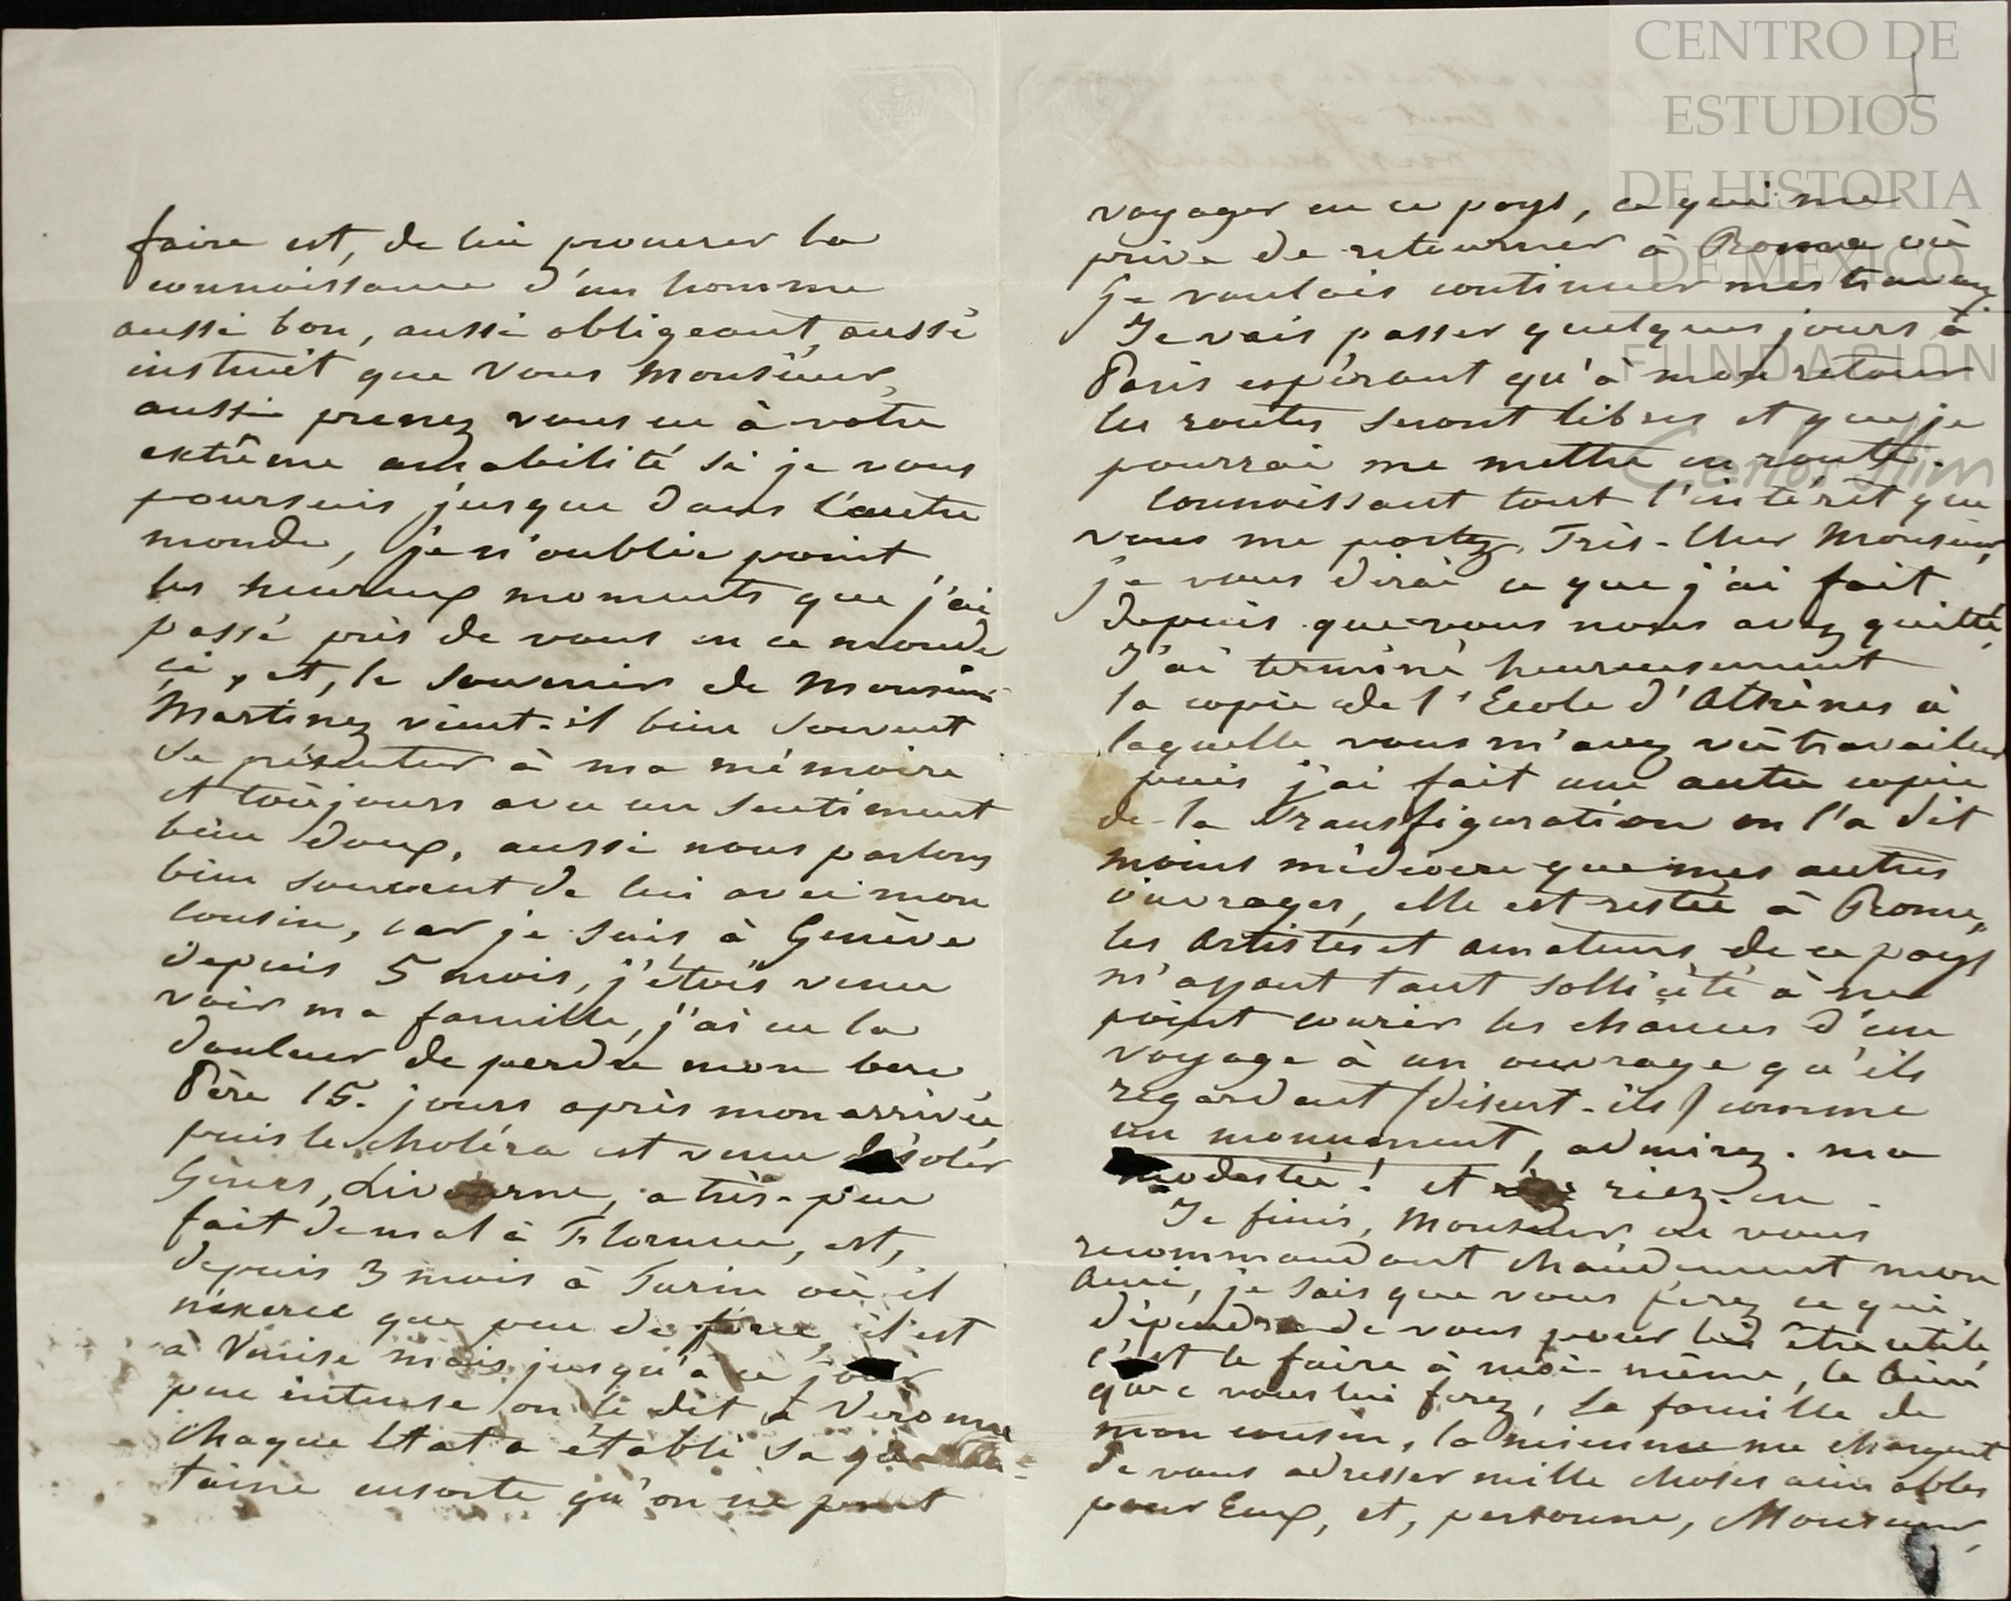 faire est, de lui procurer la
connoissance d'un homme
aussi bon, aussi obligeant, aussi
instruit que Vous Monsieur,
aussi prenez vous en à votre
extrême amabilité si je vous
poursuis jusque dans l'autre
monde, je n'oublie point
les heureux moments que j'ai
passé près de vous en ce monde
ci, et, le souvenir de Monsieur
Martinez vient-il bien souvent
se présenter à ma mémoire
et toûjours avec un sentiment
bien doux, aussi nous parlons
bien souvent de lui avec mon
Cousin, car je suis à Genève
depuis 5 mois, j'étois venu
voir ma famille, j'ai eu la
douleur de perdre mon bon
Père 15. jours après mon arrivée
puis le choléra est venu désoler
Gênes, Livourne, a très-peu
fait de mal à Florence, est,
depuis 3 mois à Turin où il
n'exerce que peu de force, il est
à Venise mais jusqu'à ce jour
peu intense on le dit à Verone
chaque Etat a établi sa quaran
taine ensorte qu'on ne peut
voyager en ce pays, ce qui me
prive de retourner à Rome où
Je voulois continuer mes travaux
Je vais passer quelques jours à
Paris espérant qu'à mon retour
les routes seront libres et que je
pourrai me mettre en route.
Connoissant tout l'intérêt que
vous me portez, Très-Cher Monsieur,
je vous dirai ce que j'ai fait
depuis que vous nous avez quitté,
J'ai terminé heureusement
la copie de l'Ecole d'Athènes à
laquelle vous m'avez vû travailler
puis j'ai fait une autre copie
de la Transfiguration on l'a dit
moins médiocre que mes autres
ouvrages, elle est restée à Rome,
les Artistes et amateurs de ce pays
m'ayant tant sollicité à ne
point courir les chances d'un
voyage à un ouvrage qu'ils
regardent (disent-ils) comme
un monument, admirez-ma
modestie! et riez-en.
Je finis, Monsieur, en vous
recommandant chaudement mon
Ami, je sais que vous ferez ce qui
dépendra de vous pour lui être utile,
c'est le faire à moi-même, le bien
que vous lui ferez, la famille de
mon cousin, la mienne me chargent
de vous adresser mille choses aimables
pour Eux, et, personne, Monsieur,
CENTRO DE
ESTUDIOS
DE HISTORIA
DE MÉXICO
FUNDACIÓN
Carlos Slim